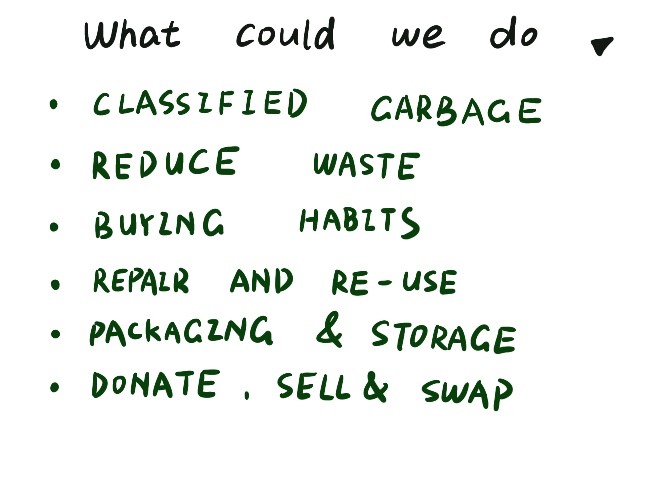 What could we do
• CLASSIFIED GARBAGE
• REDUCE WASTE
• BUYING HABITS
• REPAIR AND RE-USE
• PACKAGING & STORAGE
• DONATE , SELL & SWAP